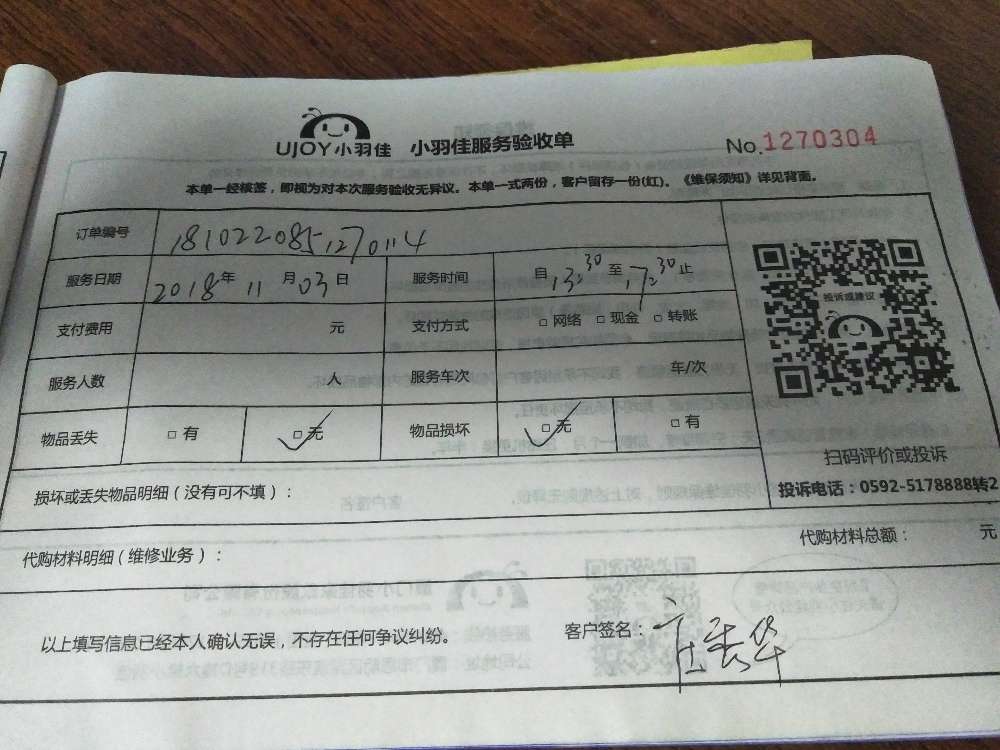 UJOY小羽佳 小羽佳服务验收单 No.1270304
本单一经核签，即视为对本次服务验收无异议。本单一式两份，客户留存一份(红)。《维保须知》详见背面。
订单编号 1810220851270114
服务日期 2018年11月03日 服务时间 自13:30至17:30止
投诉或建议
支付费用 元 支付方式 □网络 □现金 □转账
服务人数 人 服务车次 车/次
物品丢失 □有 □无 物品损坏 □无 □有
扫码评价或投诉
损坏或丢失物品明细（没有可不填）：
投诉电话：0592-5178888转2
代购材料明细（维修业务）： 代购材料总额： 元
以上填写信息已经本人确认无误，不存在任何争议纠纷。 客户签名：